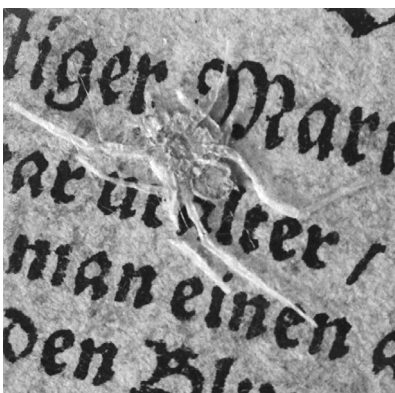 tiger Mar
ar uralter /
man einen
den Blu